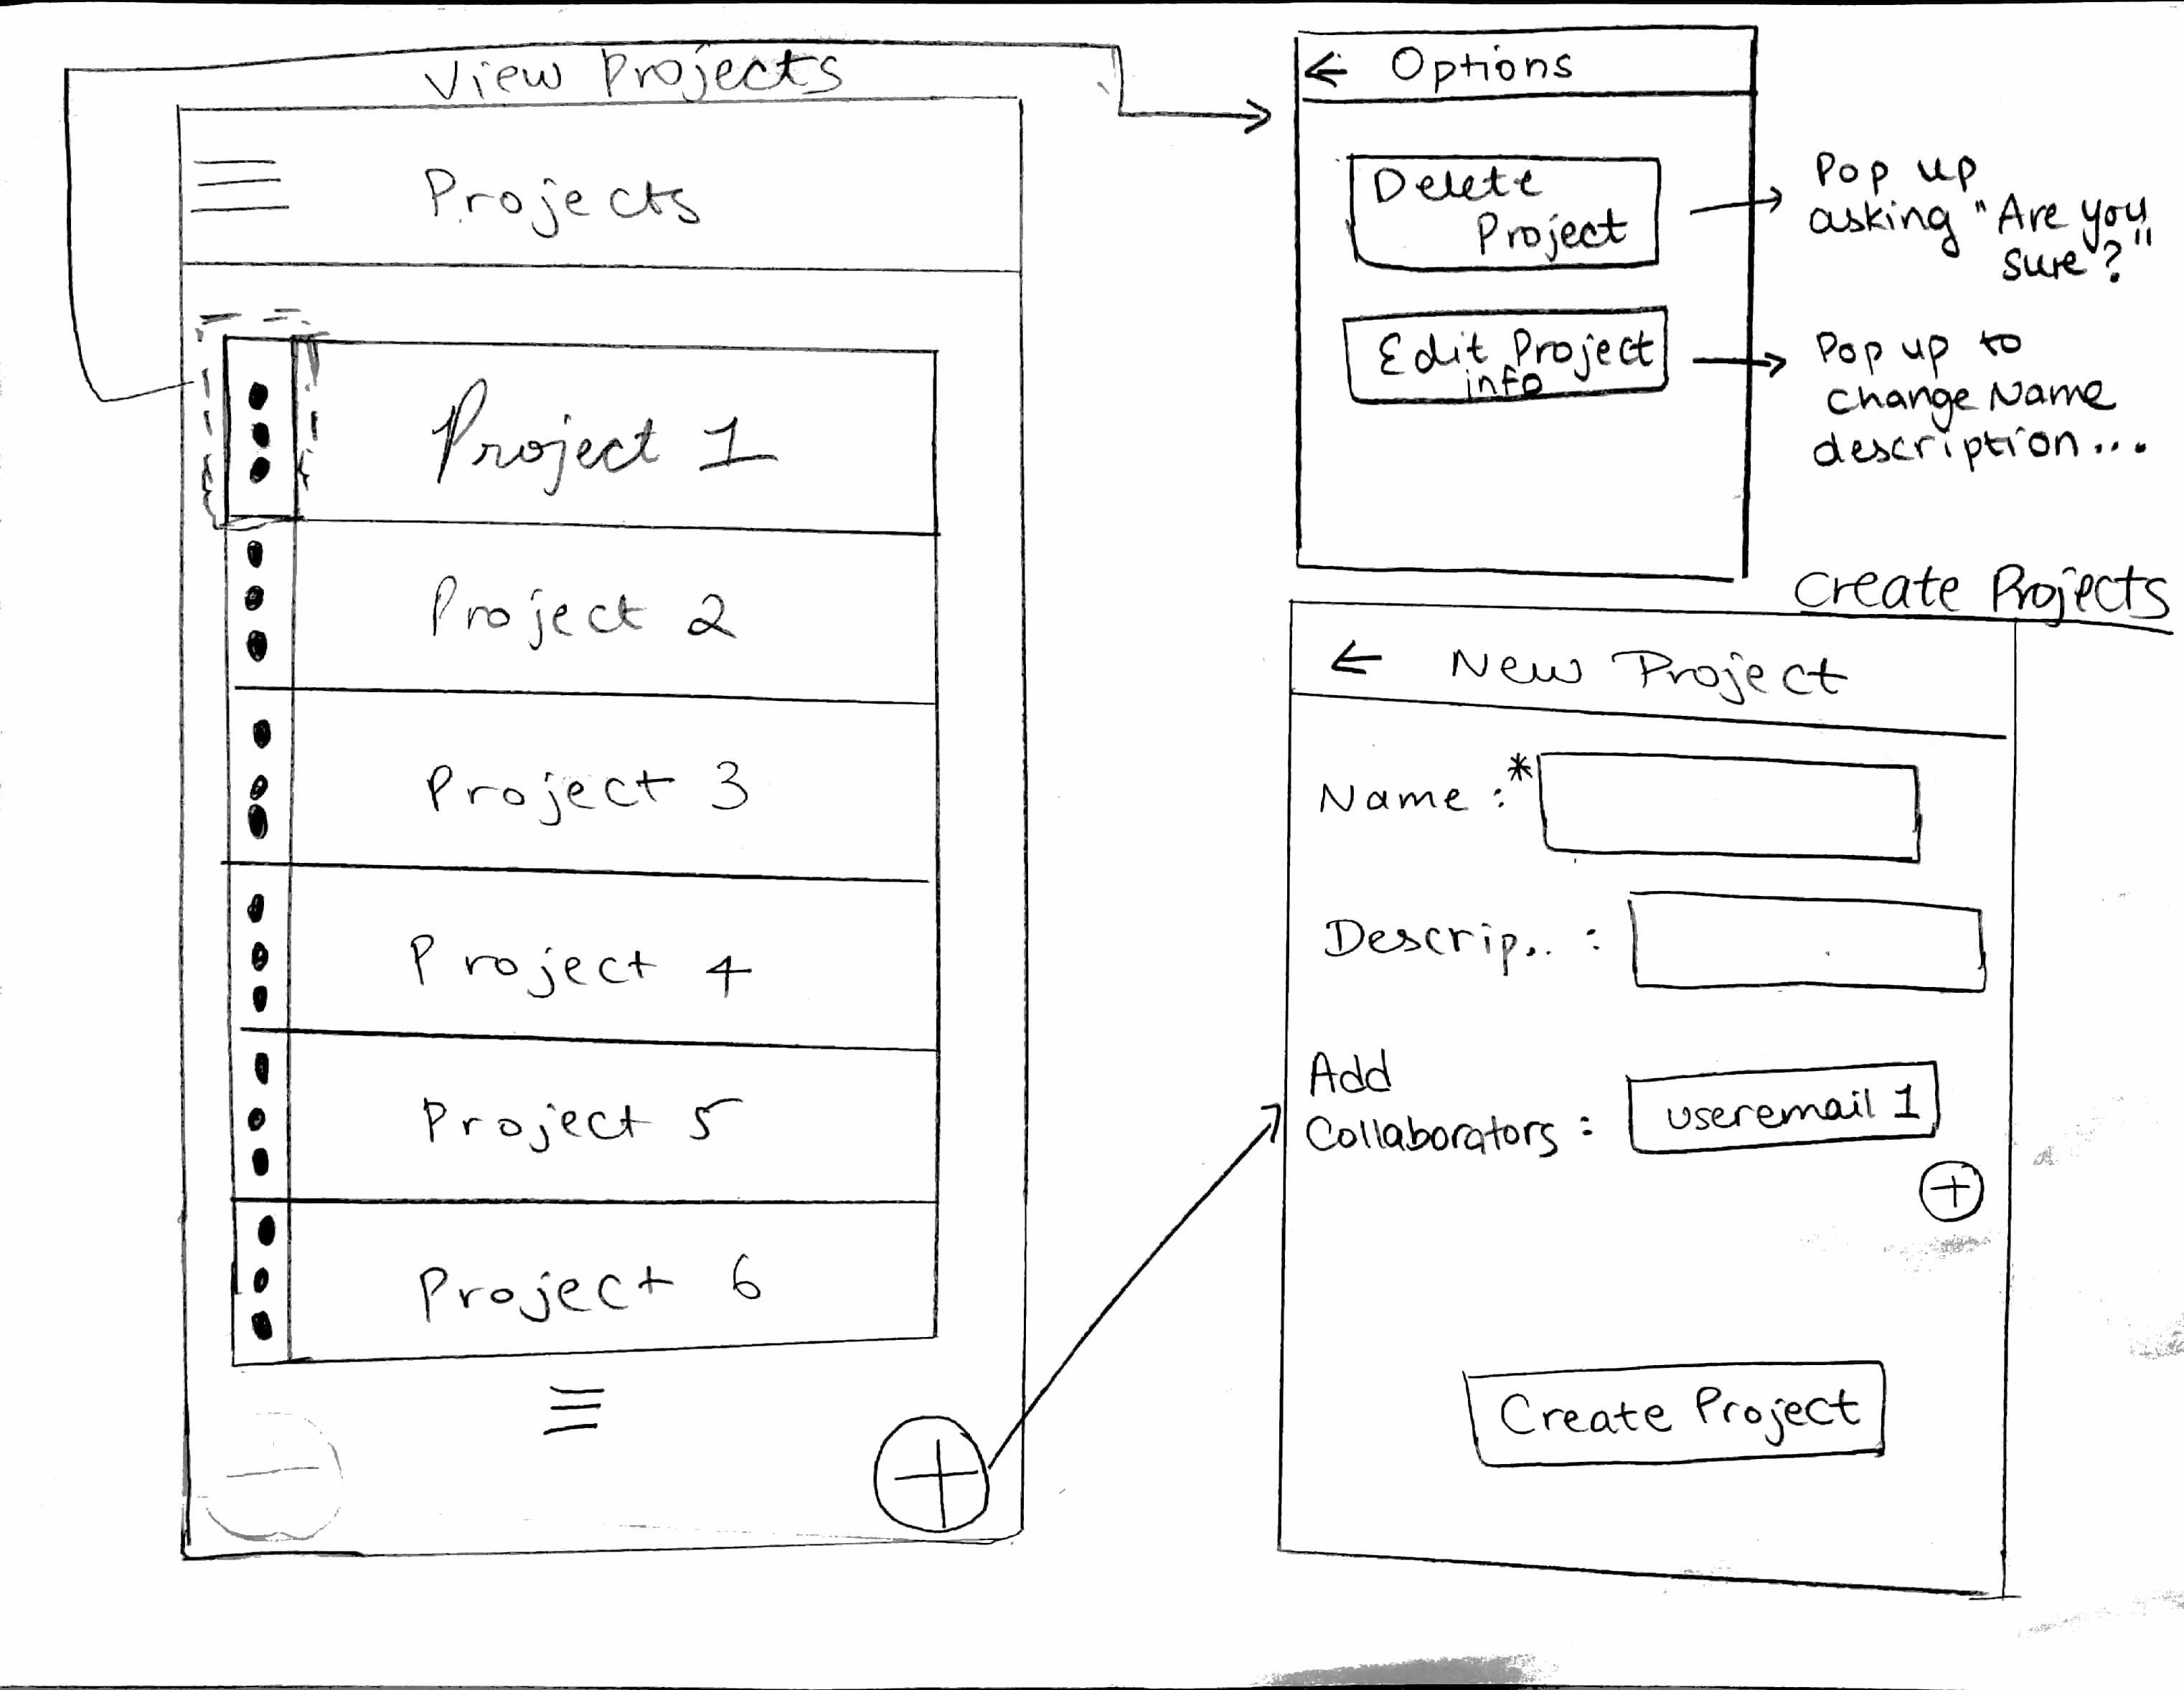 View Projects
Projects
Project 1
Project 2
Project 3
Project 4
Project 5
Project 6
← Options
Delete
Project
Pop up
asking "Are you
sure?"
Edit Project
info
Pop up to
change Name
description...
Create Projects
← New Project
Name :*
Descrip.. :
Add
Collaborators :
useremail 1
Create Project